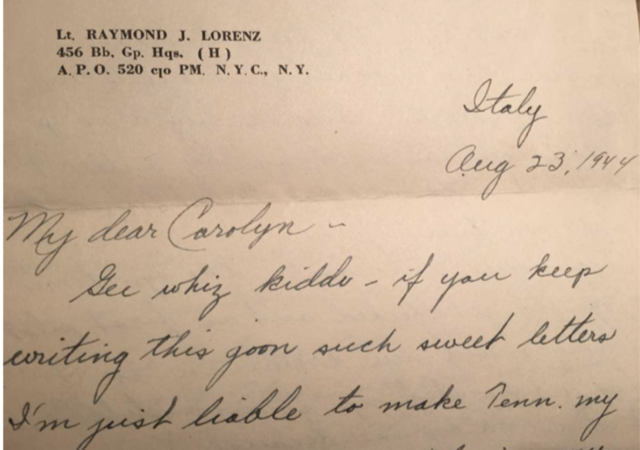 Lt. RAYMOND J. LORENZ
456 Bb. Gp. Hqs. (H)
A. P. O. 520 c/o PM. N. Y. C., N. Y.
Italy
Aug 23, 1944
My dear Carolyn -
Gee whiz kiddo - if you keep
writing this goon such sweet letters
I'm just liable to make Tenn. my